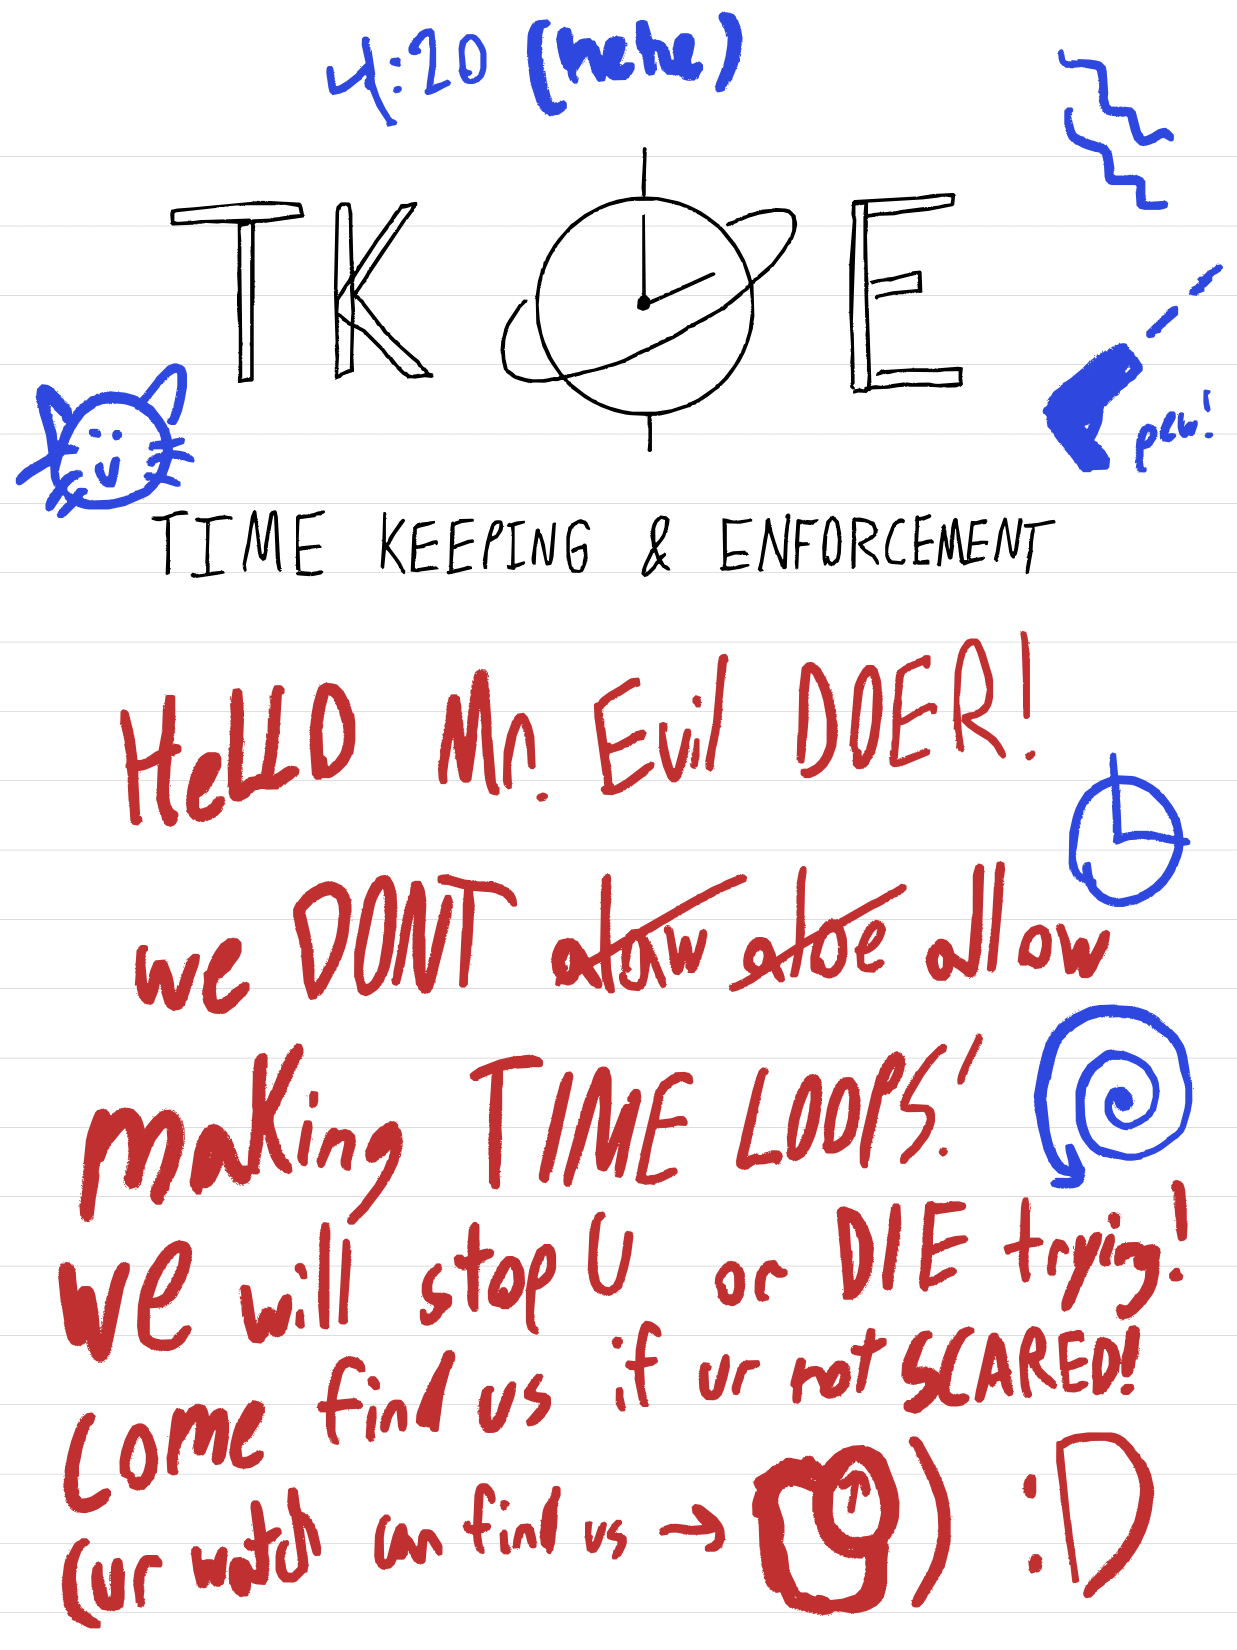 4:20 (hehe)
TK E
TIME KEEPING & ENFORCEMENT
pew!
HeLLO Mr. Evil DOER!
we DONT alaw aloe allow
making TIME LOOPS!
we will stop U or DIE trying!
come find us if ur not SCARED!
(ur watch can find us → ) :D